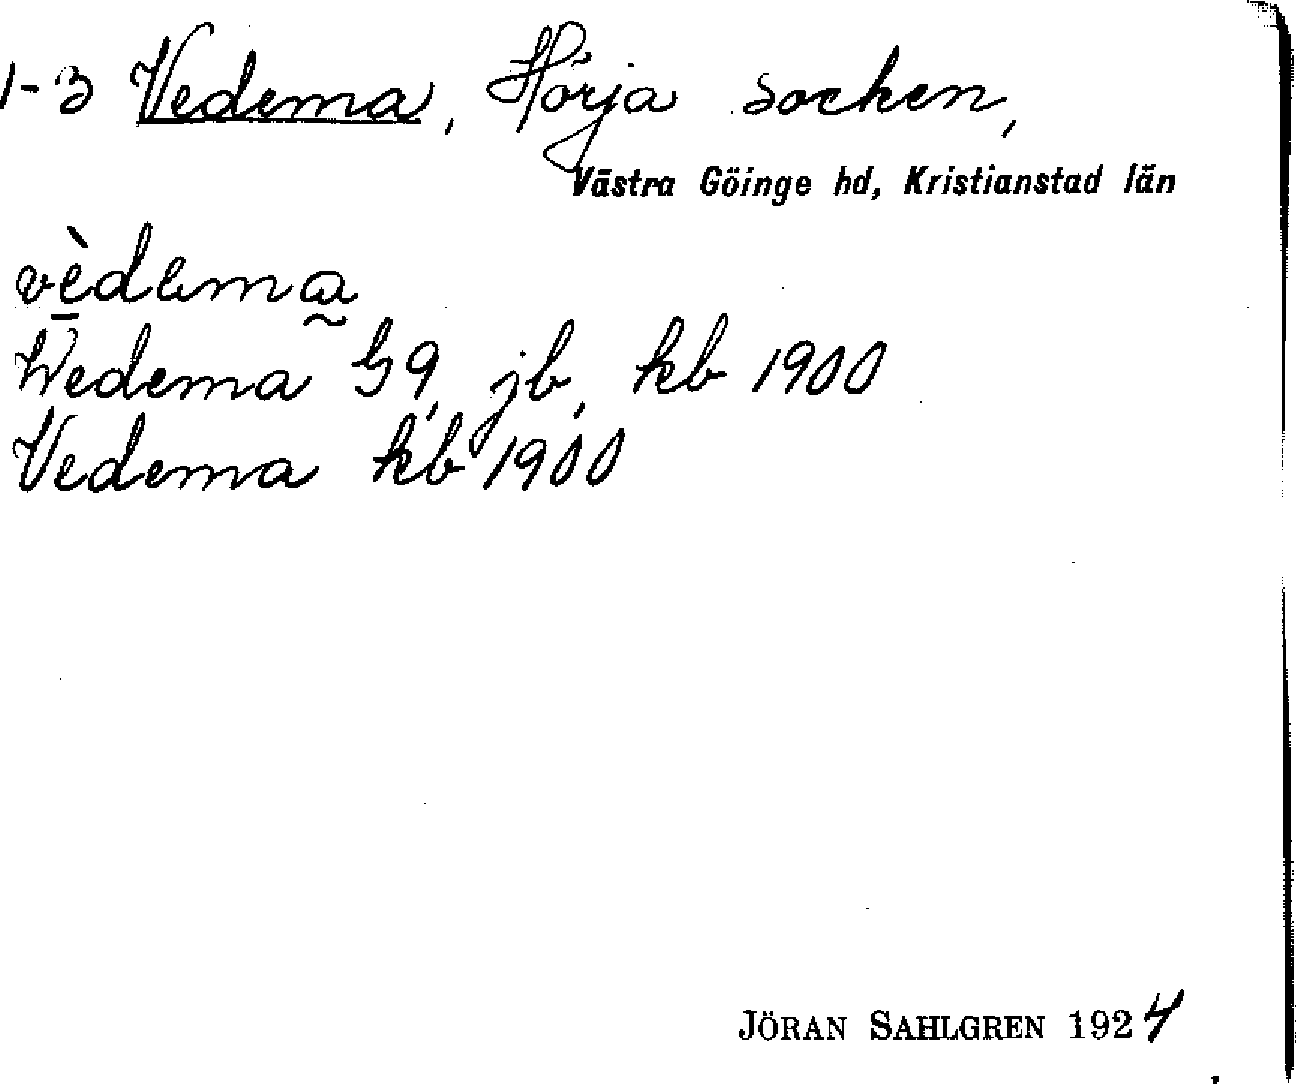 1-3 Vedema, Hörja socken,
Västra Göinge hd, Kristianstad län
vèdəma
Wedema G9, jb, kb 1900
Vedema kb 1900
JÖRAN SAHLGREN 1924